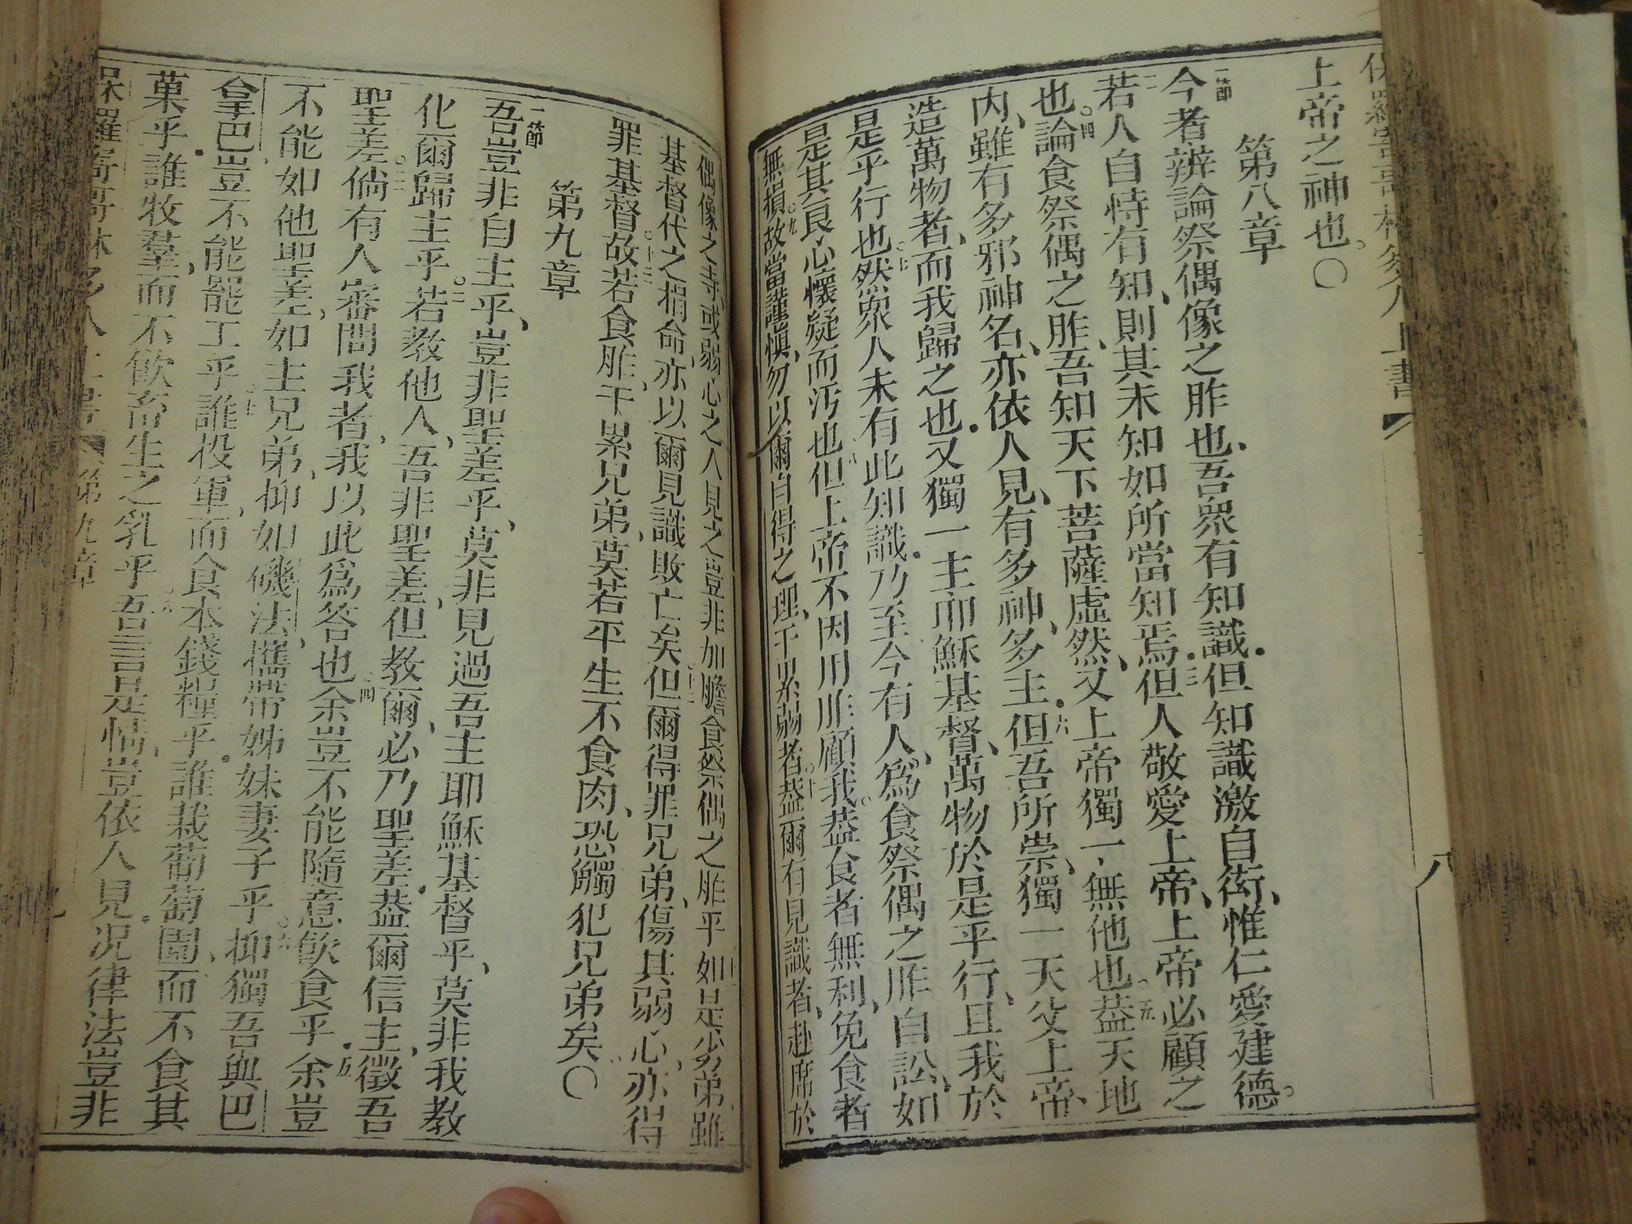 上帝之神也。〇
第八章
一節今者辨論祭偶像之胙也、吾眾有知識、但知識激自衒、惟仁愛建德。
二若人自恃有知、則其未知如所當知焉、三但人敬愛上帝、上帝必顧之
也、四論食祭偶之胙、吾知天下菩薩虛然、又上帝獨一無他也、五葢天地
內、雖有多邪神名、亦依人見、有多神、多主、六但吾所崇、獨一天父上帝、
造萬物者、而我歸之也、又獨一主耶穌基督、萬物於是乎行、且我於
是乎行也、七然眾人未有此知識、乃至今有人、為食祭偶之胙自訟、如
是其良心懷疑而污也、八但上帝不因用胙顧我、葢食者無利、免食者
無損、九故當謹慎、勿以爾自得之理、干累弱者、十葢爾有見識者、赴席於
偶像之寺、或弱心之人見之、豈非加膽食祭偶之胙乎、十一如是少弟、雖
基督代之捐命、亦以爾見識敗亡矣、十二但爾得罪兄弟、傷其弱心、亦得
罪基督、十三故若食胙、干累兄弟、莫若平生不食肉、恐觸犯兄弟矣。〇
第九章
一節吾豈非自主乎、豈非聖差乎、莫非見過吾主耶穌基督乎、莫非我教
化爾歸主乎、二若教他人、吾非聖差、但教爾、必乃聖差、葢爾信主、徵吾
聖差、三倘有人審問我者、我以此為答也、四余豈不能隨意飲食乎、五余豈
不能如他聖差、如主兄弟、抑如磯法、攜帶姊妹妻子乎、六抑獨吾與巴
拿巴豈不能罷工乎、七誰投軍、而食本錢糧乎、誰栽葡萄園、而不食其
菓乎、誰牧羣、而不飲畜生之乳乎、八吾言是情、豈依人見、況律法豈非
保羅寄哥林多人上書 第九章